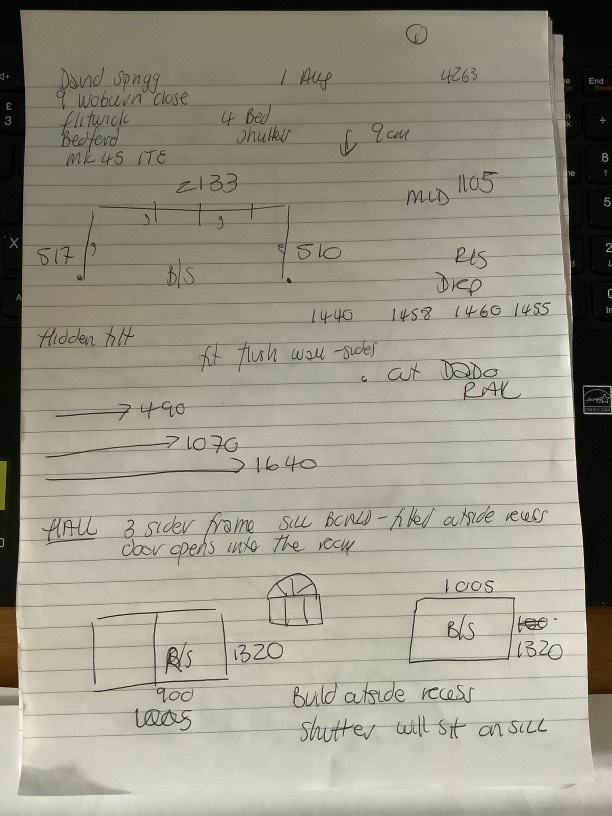 1
David Sprigg 1 Aug 4263
9 Woburn close
flitwick 4 Bed
Bedford shutters ↓ 9cm
MK 45 1TE
2133 MID 1105
517 B/S 510 R/S
Drop
1440 1458 1460 1455
Hidden tilt
fit flush wall - sides
. cut DADO
RAIL
→ 490
→ 1070
→ 1640
HALL 3 sider frame sill - fitted outside recess
door opens into the room
1005
B/S 1320 B/S 1320
900
1005 Build outside recess
shutter will sit on sill